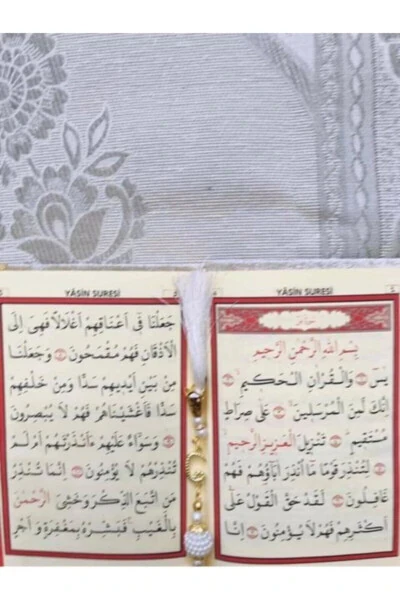 YÂSİN SURESİ
بِسْمِ اللّٰهِ الرَّحْمٰنِ الرَّحِيمِ
يٰسٓ وَالْقُرْاٰنِ الْحَكِيمِ
اِنَّكَ لَمِنَ الْمُرْسَلِينَ عَلٰى صِرَاطٍ
مُسْتَقِيمٍ تَنْزِيلَ الْعَزِيزِ الرَّحِيمِ
لِتُنْذِرَ قَوْمًا مَٓا اُنْذِرَ اٰبَٓاؤُهُمْ فَهُمْ
غَافِلُونَ لَقَدْ حَقَّ الْقَوْلُ عَلٰٓى
اَكْثَرِهِمْ فَهُمْ لَا يُؤْمِنُونَ اِنَّا
YÂSİN SURESİ
جَعَلْنَا فٓى اَعْنَاقِهِمْ اَغْلَالًا فَهِىَ اِلَى
الْاَذْقَانِ فَهُمْ مُقْمَحُونَ وَجَعَلْنَا
مِنْ بَيْنِ اَيْدِيهِمْ سَدًّا وَمِنْ خَلْفِهِمْ
سَدًّا فَاَغْشَيْنَاهُمْ فَهُمْ لَا يُبْصِرُونَ
وَسَوَٓاءٌ عَلَيْهِمْ ءَاَنْذَرْتَهُمْ اَمْ لَمْ
تُنْذِرْهُمْ لَا يُؤْمِنُونَ اِنَّمَا تُنْذِرُ
مَنِ اتَّبَعَ الذِّكْرَ وَخَشِىَ الرَّحْمٰنَ
بِالْغَيْبِ فَبَشِّرْهُ بِمَغْفِرَةٍ وَ اَجْرٍ